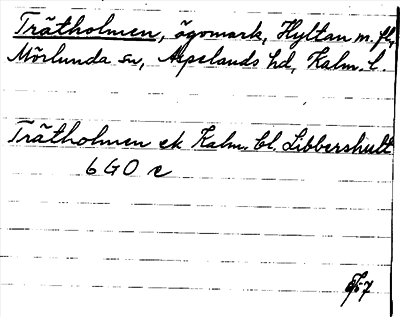 Trätholmen, ägomark, Hyltan m. fl,
Mörlunda sn, Aspelands hd, Kalm. l.
Trätholmen ek Kalm. bl. Libbershult
6 G O c